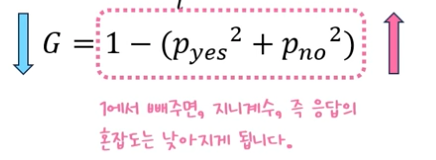 G = 1 − (p_yes² + p_no²)
1에서 빼주면, 지니계수, 즉 응답의
혼잡도는 낮아지게 됩니다.